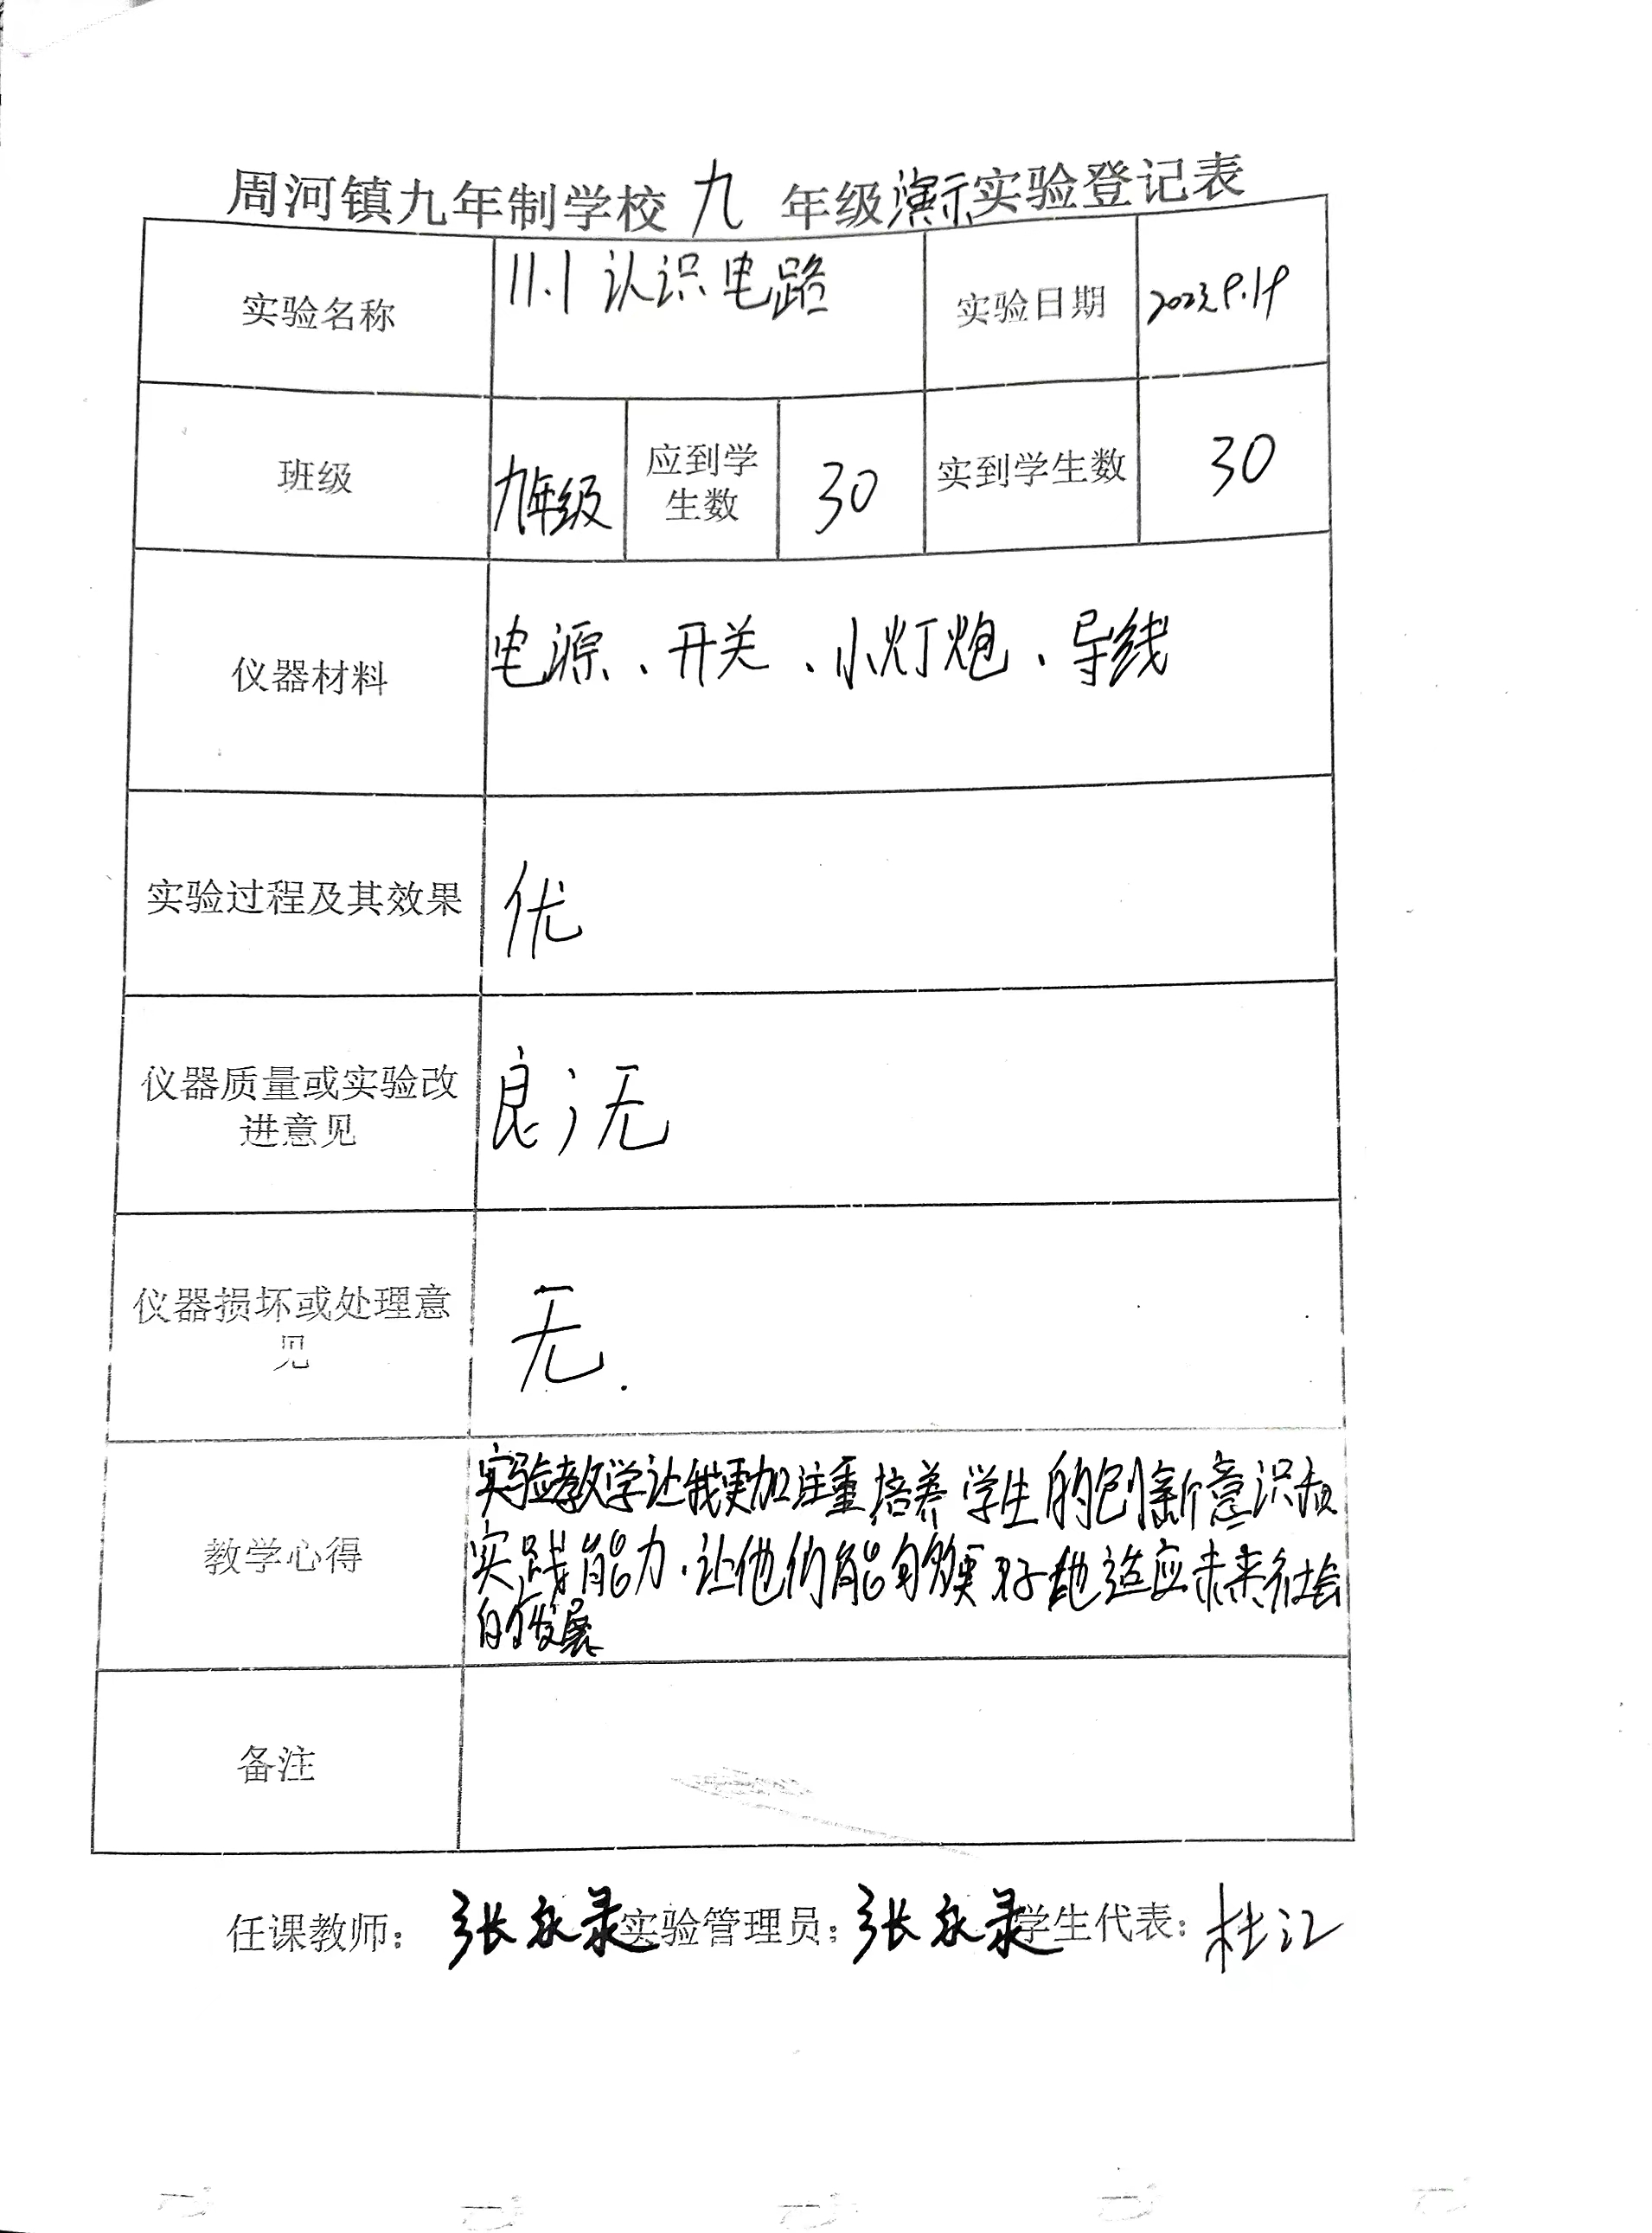 周河镇九年制学校 九 年级演示实验登记表
实验名称 11.1 认识电路 实验日期 2023.9.19
班级 九年级 应到学生数 30 实到学生数 30
仪器材料 电源、开关、小灯炮、导线
实验过程及其效果 优
仪器质量或实验改进意见 良;无
仪器损坏或处理意见 无.
教学心得 实验教学让我更加注重培养学生的创新意识和
实践能力.让他们能够更好地适应未来社会
的发展
备注
任课教师: 张永录 实验管理员: 张永录 学生代表: 杜江